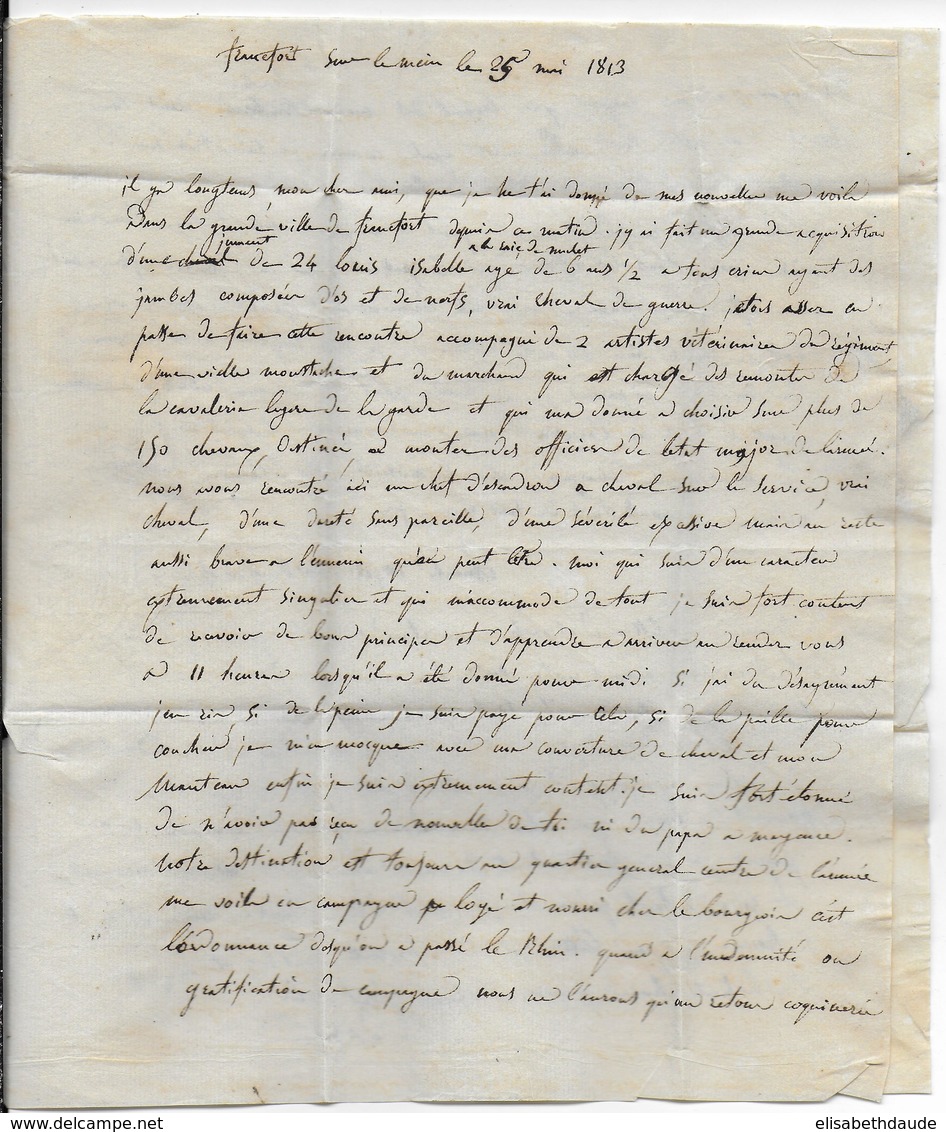 francfort sur le mein le 25 mai 1813
il y a longtems, mon cher ami, que je ne t'ai donné de mes nouvelles me voila
Dans la grande ville de francfort depuis ce matin. j'y ai fait une grande acquisition
jument a la raie de mulet
d'une cheval de 24 louis isabelle agé de 6 ans 1/2 a tous crins ayant des
jambes composées d'os et de nerfs, vrai cheval de guerre. j'etois assez en
passe de faire cette rencontre accompagné de 2 artistes vétérinaires du régiment
d'une vielle moustache et du marchand qui est chargé des remontes de
la cavalerie legere de la garde et qui m'a donné a choisir sur plus de
150 chevaux, destinés, a monter des officiers de l'etat major de l'armée.
nous avons rencontré ici un chef d'escadron a cheval sur le service, vrai
cheval, d'une dureté sans pareille, d'une sévérité excessive mais au reste
aussi brave a l'ennemi qu'on peut l'être. moi qui suis d'un caractere
extremement singulier et qui m'accommode de tout je suis fort content
de recevoir de bons principes et d'apprendre a arriver au rendez vous
a 11 heures lorsqu'il a été donné pour midi si j'ai du désagrément
j'en ris, si de la peine je suis payé pour cela, si de la paille pour
coucher je m'en mocque avec ma couverture de cheval et mon
Manteau enfin je suis extremement content. je suis fort étonné
de n'avoir pas reçu de nouvelle de toi ni du papa a mayence.
notre destination est toujours au quartier general centre de l'armée
me voila en campagne logé et nourri chez le bourgeois c'est
l'ordonnance dès qu'on a passé le Rhin. quand a l'indemnité ou
gratification de campagne nous ne l'aurons qu'au retour coquinerie
elisabethdaude